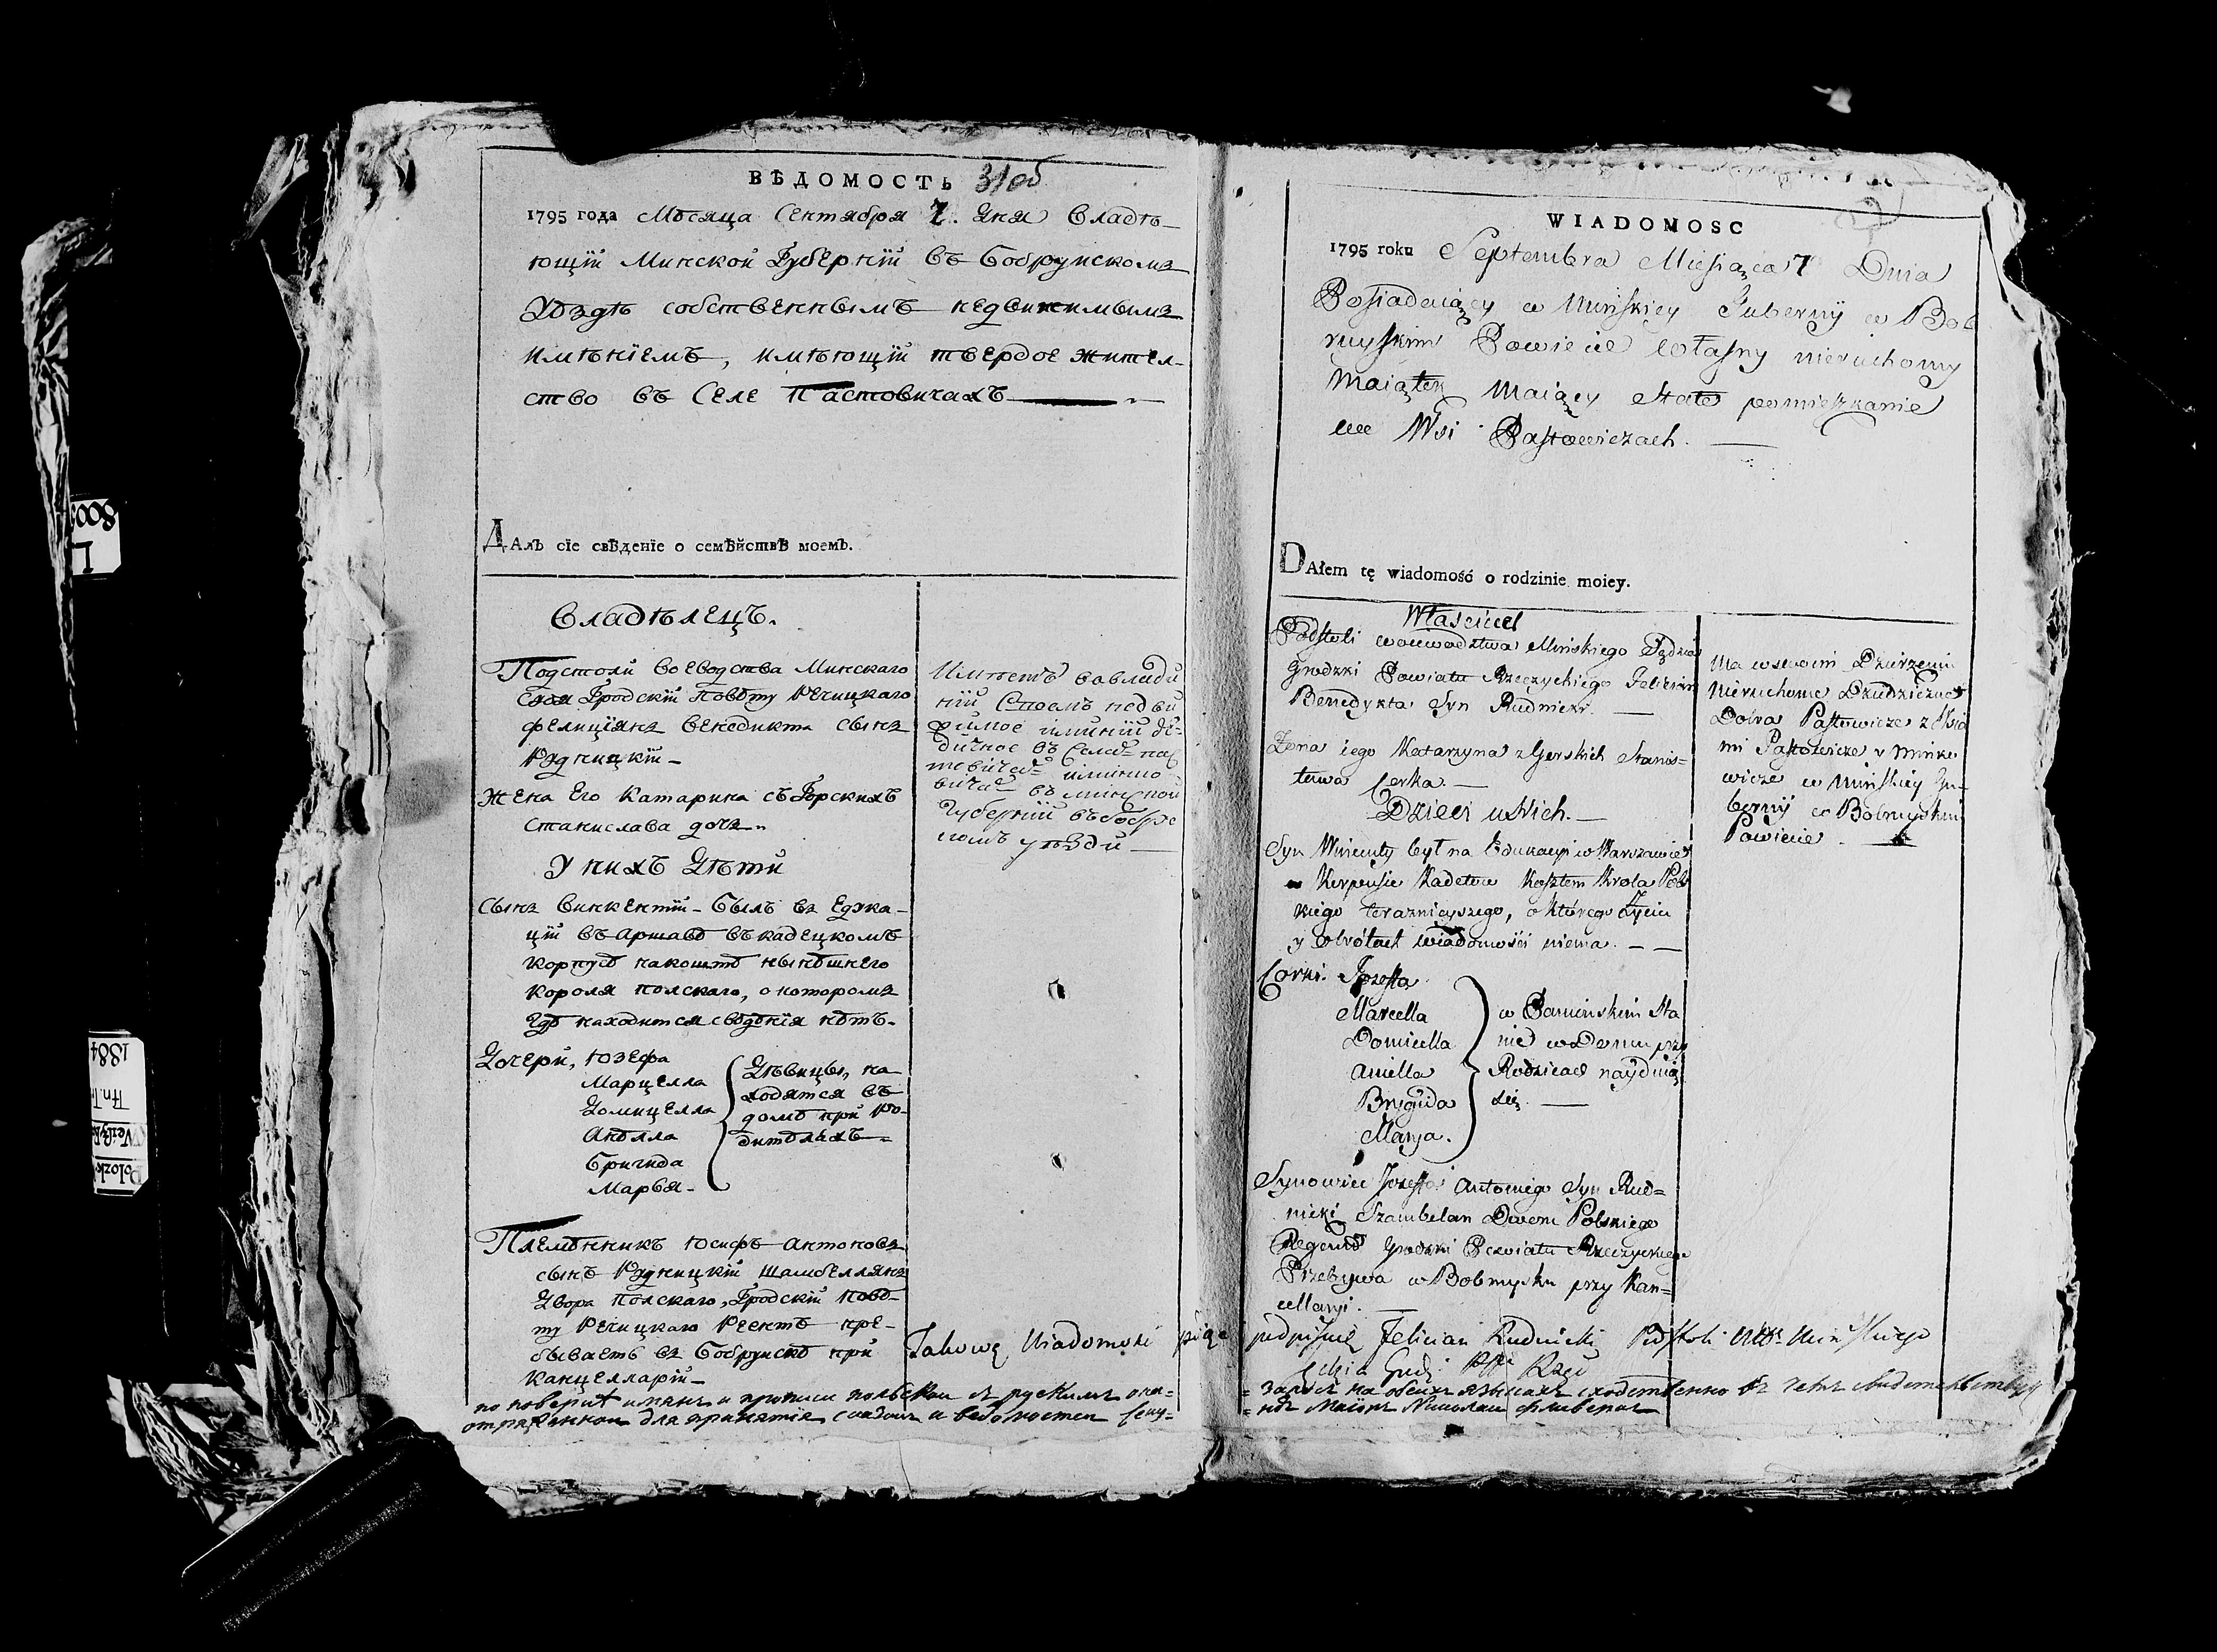 ВѢДОМОСТЬ 31об
1795 года Мѣсяца Сентября 7. Дня Владѣ-
ющій Минской Губерніи въ Бобруискомъ
Уѣздѣ собственнымъ недвижимымъ
имѣніемъ, имѣющій твердое жител-
ство въ Селе Пастовичахъ
ДАлъ сіе свѣденіе о семѣйствѣ моемъ.
Владѣлецъ.
Подстоли воеводства Минскаго
Судя Гродскій Повѣту Речицкаго
Фелиціянъ Бенедикта сынъ
Рудницкій -
Жена Его Катарина съ Горскихъ
Станислава дочь.
У нихъ Дѣти
Сынъ Винкентій - былъ въ Едука-
ціи въ Аршавѣ въ кадецкомъ
корпусѣ на коштѣ нынѣшнего
короля полскаго, о которомъ
гдѣ находится свѣдѣнія нѣтъ.
Дочери, Юзефа
Марцелла
Домицелла
Анѣлла
Бригида
Марья -
Дѣвицы, на-
ходятся въ
домѣ при Ро-
дитѣляхъ
Племѣнникъ Юсифъ Антоновъ
сынъ Рудницкій Шамбеллянъ
Двора Полскаго, Гродскій Повѣ-
ту Речицкаго Реентъ пре-
бываетъ въ Бобруискѣ при
Канцелларіи -
Имѣетъ во влади
ніи Своемъ недви
жимое иминіи дѣ-
дичное въ Селаъ Пас
товичаъ
въ минской
Губерніи въ Бобру
скомъ уѣзди
WIADOMOSC
1795 roku Septembra Miesiąca 7 Dnia
Posiadaiący w Mińskiey Guberniy w Bob
ruyskim Powiecie własny nieruchomy
Maiątek maiący stałe pomieszkanie
we Wsi Pastowiczach.
DAłem tę wiadomość o rodzinie moiey.
Właściciel
Podstoli woiewodztwa Mińskiego Sędzia
Grodzki Powiatu Rzeczyckiego Felician
Benedykta Syn Rudnicki.
Zona iego Katarzyna z Gorskich Stanis-
ława Corka.
Dzieci u Nich.
Syn Wincenty był na Edukacyi w Warszawie
w Korpusie Kadetow Kosztem Krola Pols
kiego teraznieyszego, o którego Życiu
y obrótach wiadomości niema.
Corki. Jozefa
Marcella
Domicella
Aniella
Brygida
Marya.
w Panieńskim Sta
nie w Domu przy
Rodzicach nayduią
się.
Synowiec Jozef Antoniego Syn Rud=
nicki Szambelan Dworu Polskiego
Regent Grodzki Powiatu Rzeczyckiego
Przebywa w Bobruysku przy Kan=
cellaryi.
Ma w swoim Dzierzeniu
Nieruchome Dziedziczne
Dobra Pastowicze z Wsia
mi Pastowicze y Minko
wicze w Mińskiey Gu-
berniy w Bobruyskim
Powiecie.
Takowę Wiadomość podpisuię Felician Rudnicki Podstoli Mińskiego
Sędzia Grodz: Rzeć
по поверке и польской и руским
отряженной для принятія и ведомостей секу=
на обеихъ языкахъ сходственно въ чемъ свидетелствую
=ндъ Маіоръ Николай